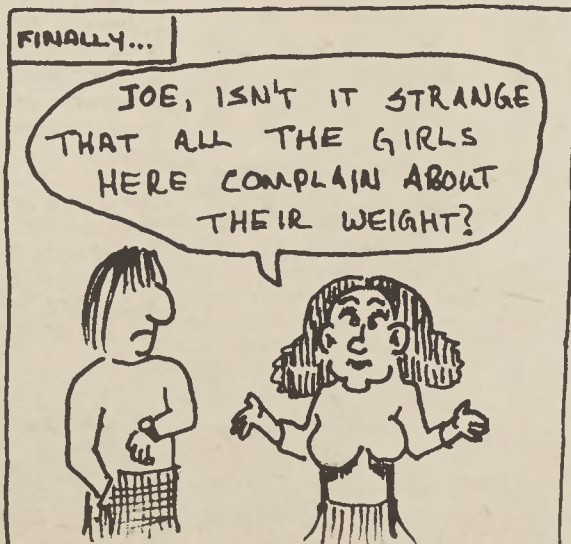 FINALLY...
JOE, ISN'T IT STRANGE
THAT ALL THE GIRLS
HERE COMPLAIN ABOUT
THEIR WEIGHT?